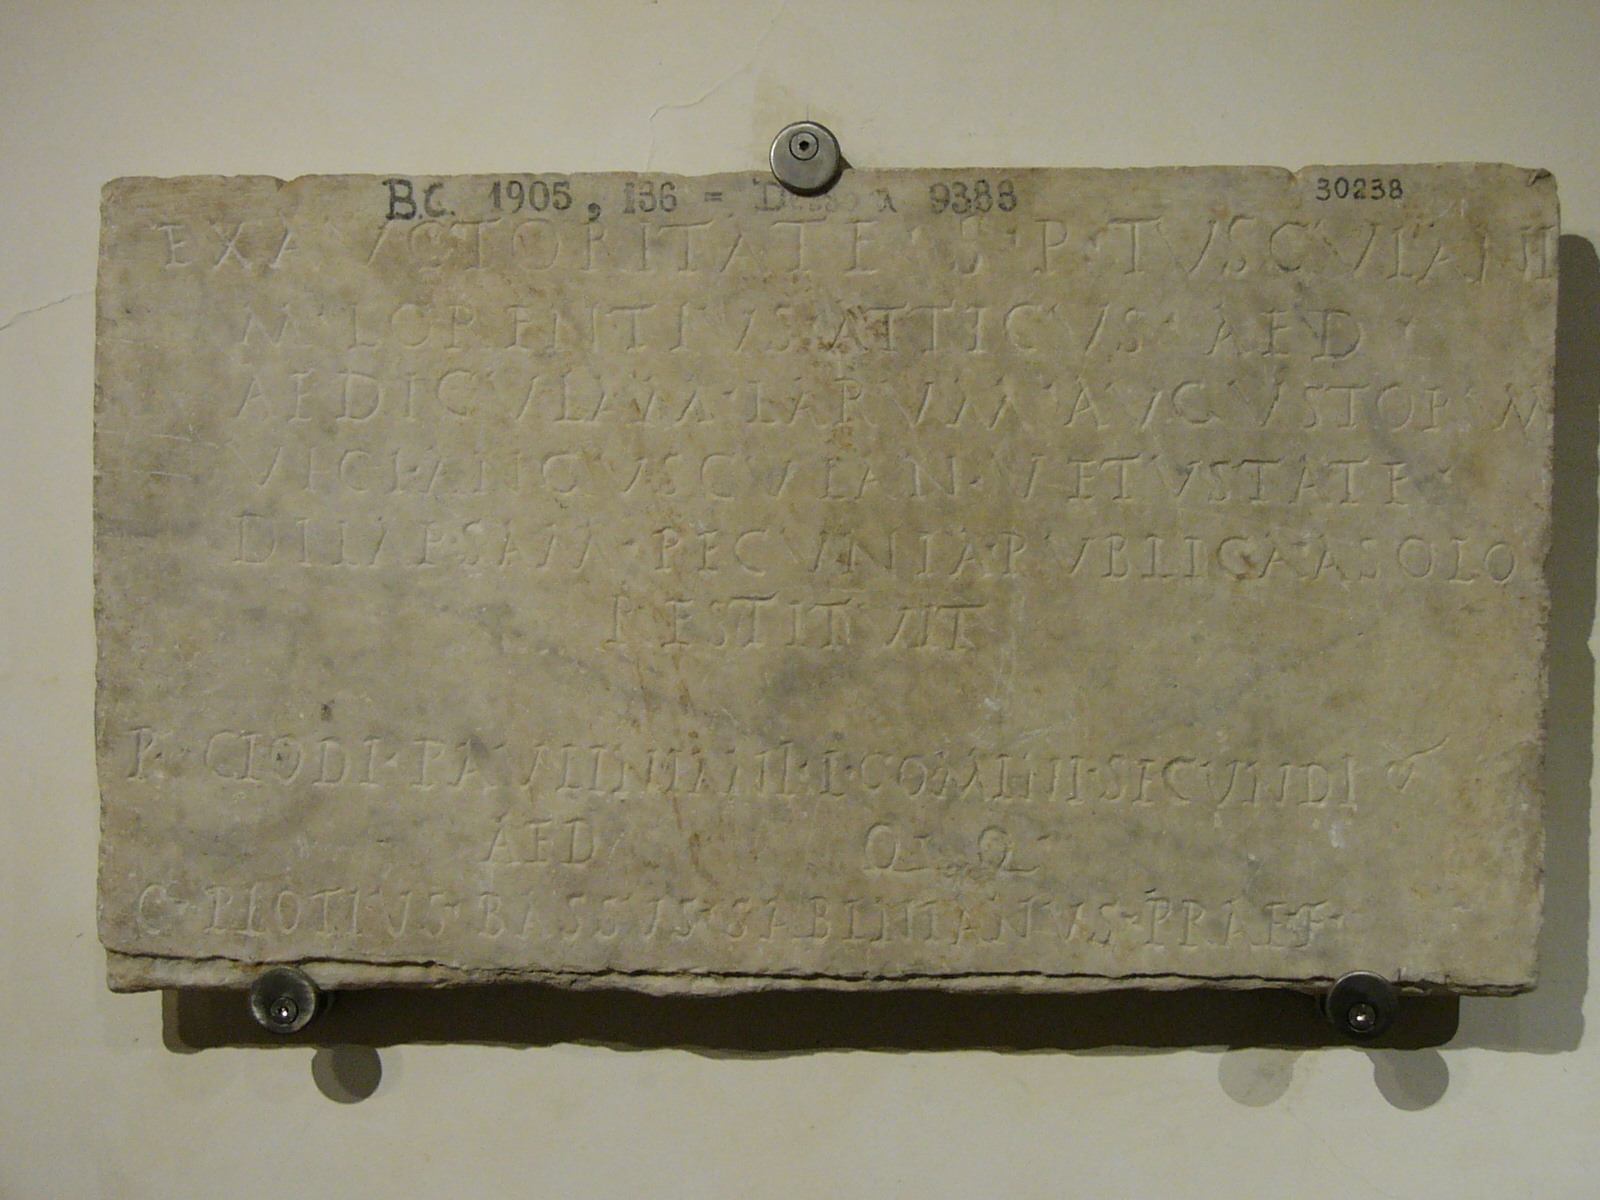 B.C. 1905, 136 = Dessau 9388
30238
EX AVCTORITATE · S · P · TVSCVLANI
M · LORENTIVS · ATTICVS · AED ·
AEDICVLAM · LARVM · AVGVSTOR · M
VICI ANGVSCVLAN · VETVSTATE ·
DILAPSAM · PECVNIA · PVBLICA · A SOLO
RESTITVIT
P · CLODI · PAVLINIANI · L · COMINI · SECVNDI
AED Q · Q ·
C · PLOTIVS · BASSVS · SABINIANVS · PRAEF ·